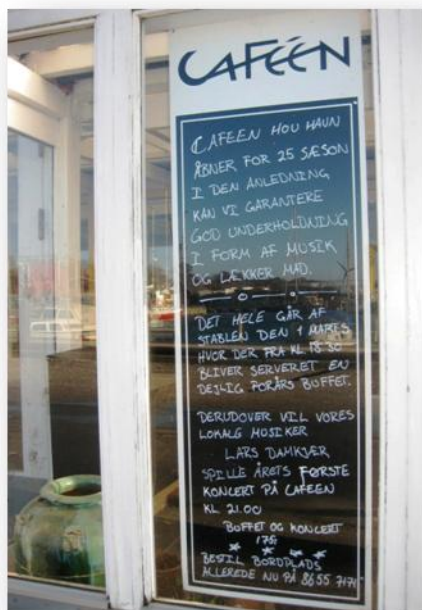 CAFÉEN
CAFEEN HOU HAVN
ÅBNER FOR 25 SÆSON
I DEN ANLEDNING
KAN VI GARANTERE
GOD UNDERHOLDNING
I FORM AF MUSIK
OG LÆKKER MAD.
DET HELE GÅR AF
STABLEN DEN 1 MARTS
HVOR DER FRA KL 18.30
BLIVER SERVERET EN
DEJLIG FORÅRS BUFFET.
DERUDOVER VIL VORES
LOKALE MUSIKER
LARS DAMKJÆR
SPILLE ÅRETS FØRSTE
KONCERT PÅ CAFEEN
KL 21.00
BUFFET OG KONCERT
BESTIL BORDPLADS
ALLEREDE NU PÅ 8655 7171